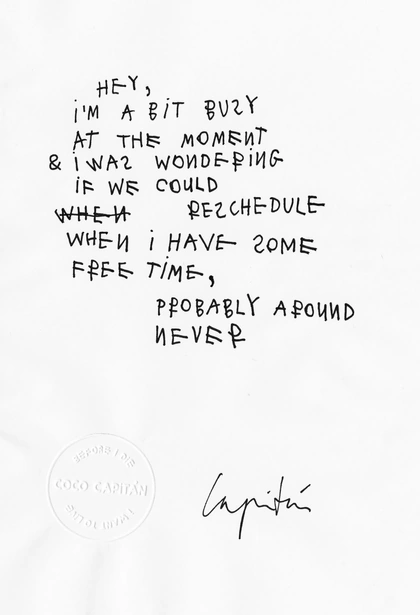 HEY,
i'M A BiT BUSY
AT THE MOMENT
& i WAS WONDERiNG
iF WE COULD
WHEN RESCHEDULE
WHEN i HAVE SOME
FREE TiME,
PROBABLY AROUND
NEVER
BEFORE I DIE
COCO CAPITÁN
I WANT TO LIVE
Capitán